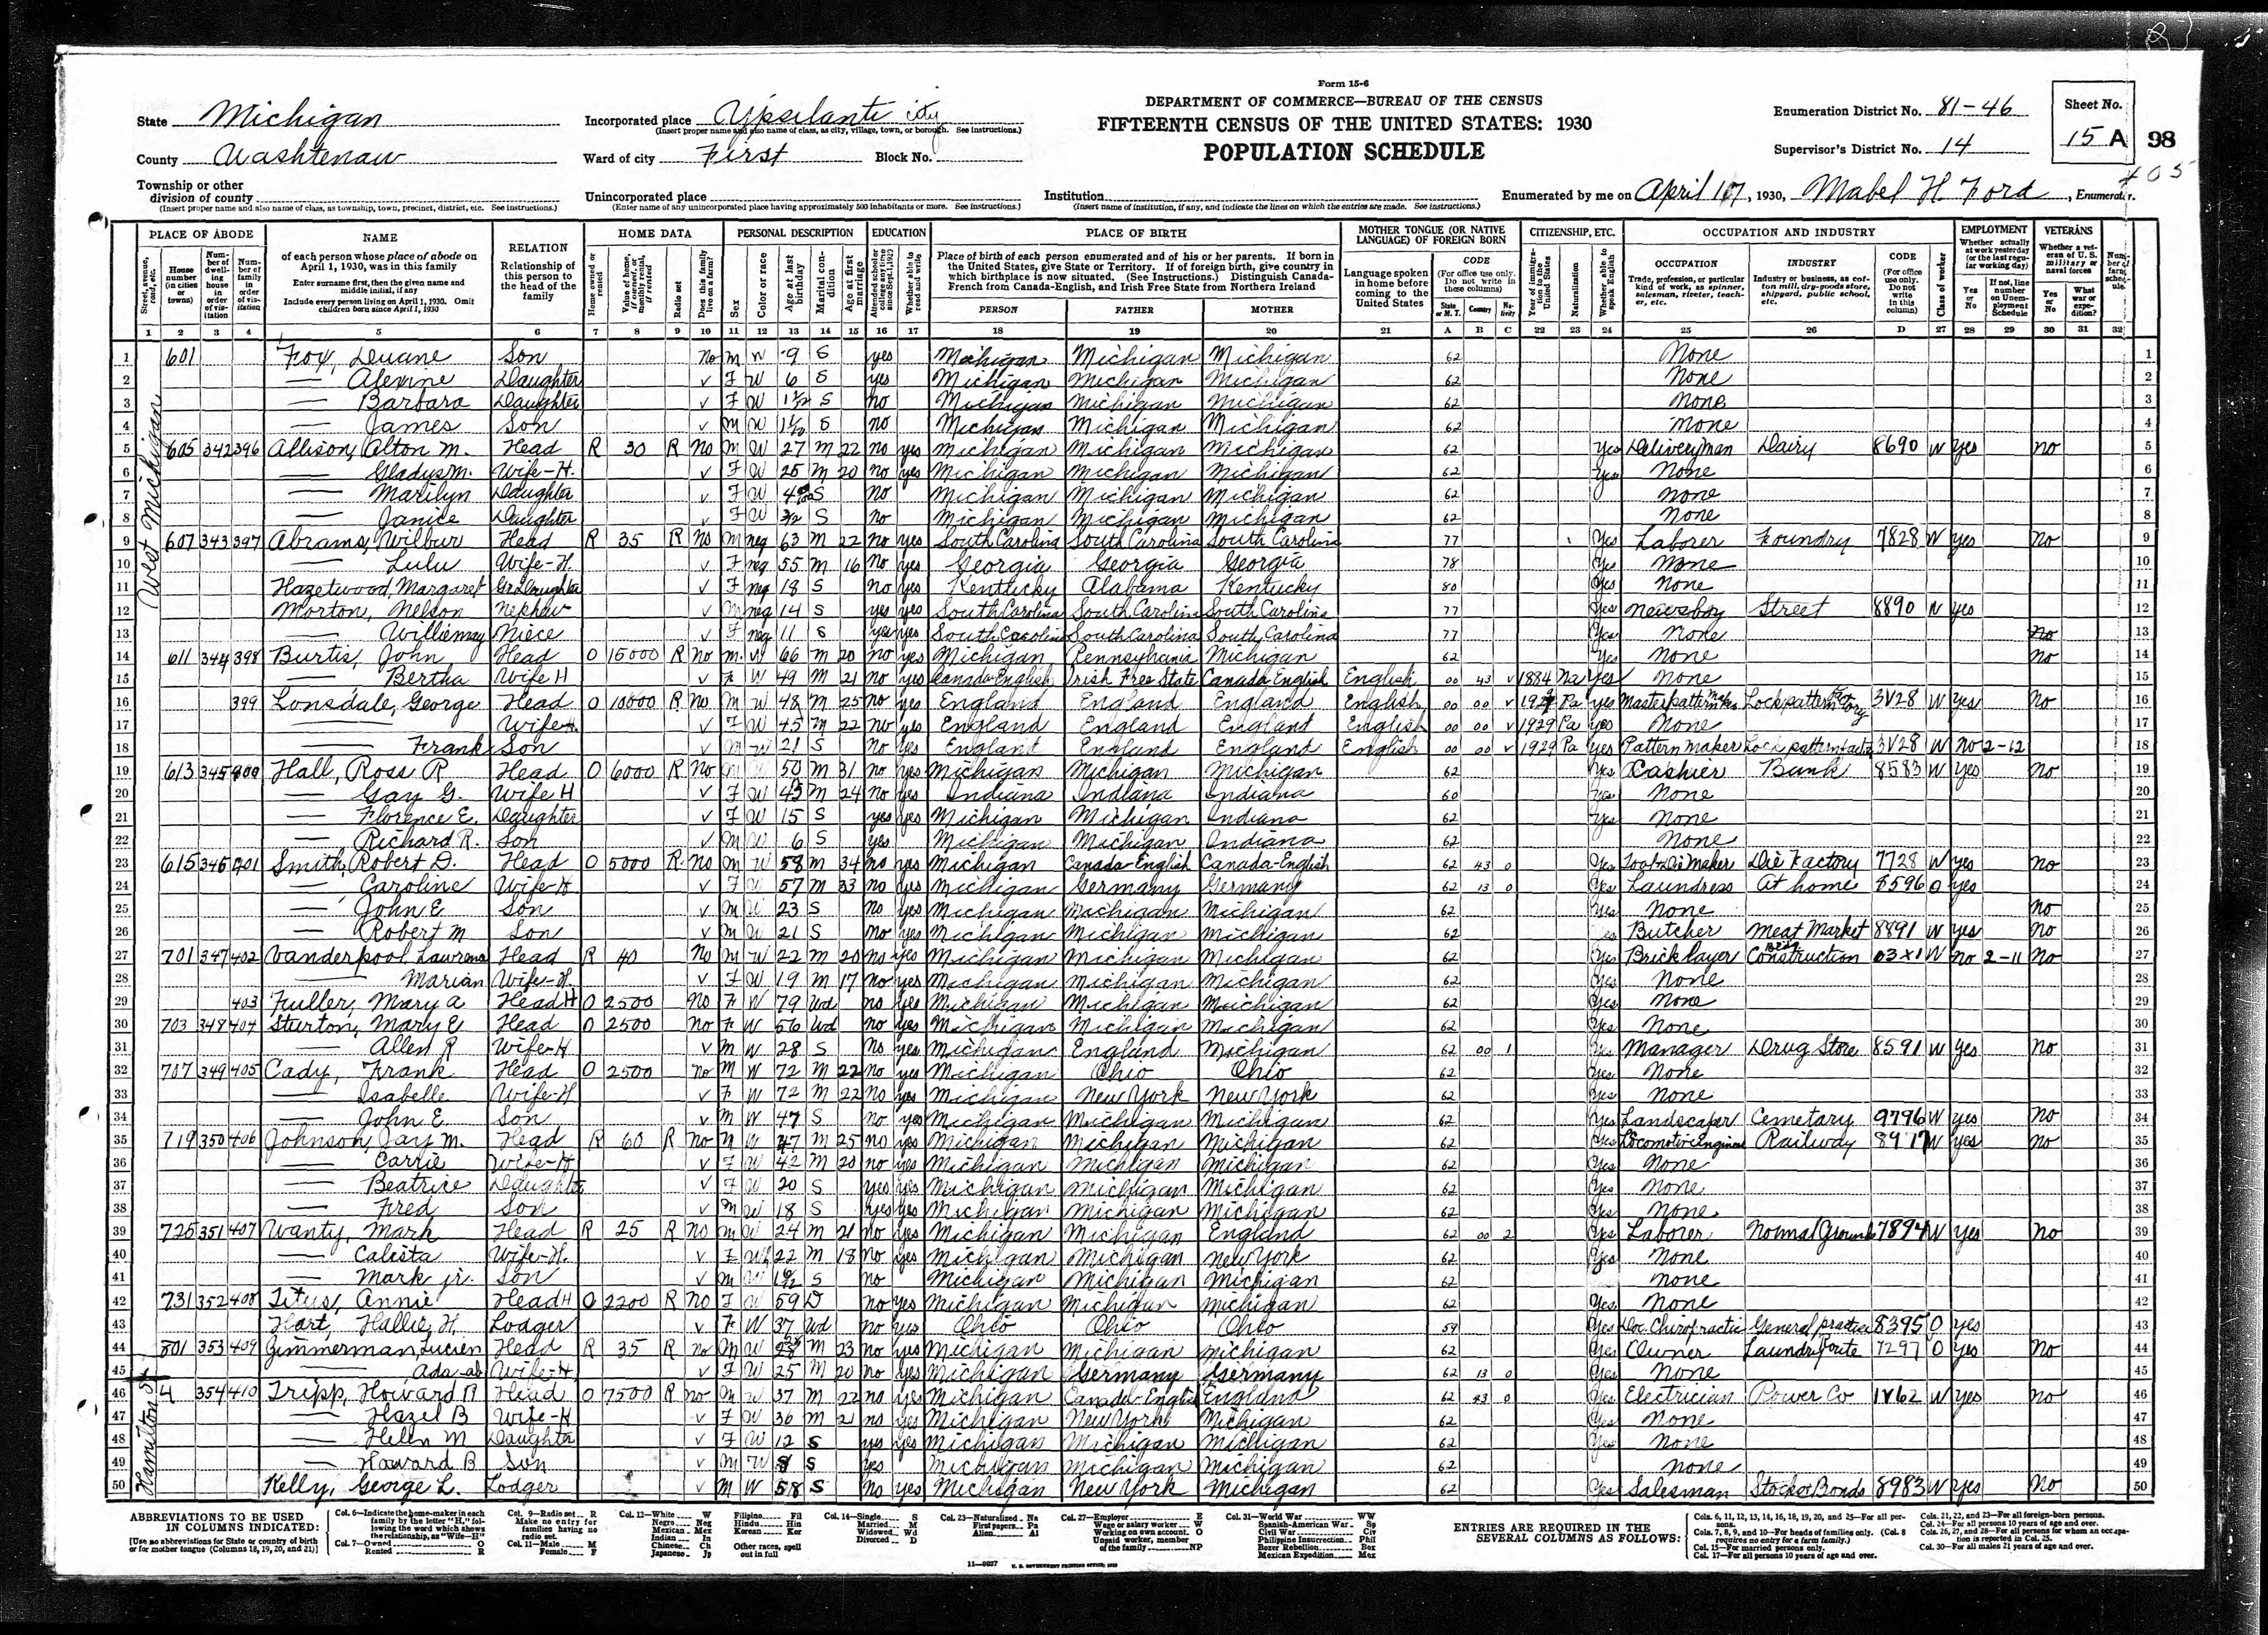 Form 15-6
DEPARTMENT OF COMMERCE—BUREAU OF THE CENSUS
FIFTEENTH CENSUS OF THE UNITED STATES: 1930
POPULATION SCHEDULE
State Michigan
County Washtenaw
Township or other division of county
(Insert proper name and also name of class, as township, town, precinct, district, etc. See instructions.)
Incorporated place Ypsilanti city
(Insert proper name and also name of class, as city, village, town, or borough. See instructions.)
Ward of city First Block No.
Unincorporated place
(Enter name of any unincorporated place having approximately 500 inhabitants or more. See instructions.)
Institution
(Insert name of institution, if any, and indicate the lines on which the entries are made. See instructions.)
Enumeration District No. 81-46
Supervisor's District No. 14
Sheet No. 15 A 98
Enumerated by me on April 17, 1930, Mabel H. Ford, Enumerator.
PLACE OF ABODE NAME RELATION HOME DATA PERSONAL DESCRIPTION EDUCATION PLACE OF BIRTH MOTHER TONGUE (OR NATIVE LANGUAGE) OF FOREIGN BORN CITIZENSHIP, ETC. OCCUPATION AND INDUSTRY EMPLOYMENT VETERANS
West Michigan
1 601 Fox, Duane Son No M W 9 S yes Michigan Michigan Michigan 62 None 1
2 Daughter v F W 6 S yes Michigan Michigan Michigan 62 None 2
3 Barbara Daughter v F W S no Michigan Michigan Michigan 62 None 3
4 James Son v M W S no Michigan Michigan Michigan 62 None 4
5 605 342 396 Allison, Alton M. Head R 30 R No M W 27 M 22 no yes Michigan Michigan Michigan 62 Yes Deliveryman Dairy 8690 W yes no 5
6 Gladys M. Wife-H. v F W 25 M 20 no yes Michigan Michigan Michigan 62 Yes None 6
7 Marilyn Daughter v F W S no Michigan Michigan Michigan 62 None 7
8 Janice Daughter v F W S no Michigan Michigan Michigan 62 None 8
9 607 343 397 Abrams, Wilbur Head R 35 R No M neg 63 M 22 no yes South Carolina South Carolina South Carolina 77 Yes Laborer Foundry 7828 W yes No 9
10 Lulu Wife-H. v F neg 55 M 16 No yes Georgia Georgia Georgia 78 Yes None 10
11 Hazelwood, Margaret GrDaughter v F neg 18 S No yes Kentucky Alabama Kentucky 80 Yes None 11
12 Morton, Nelson nephew v M neg 14 S yes yes South Carolina South Carolina South Carolina 77 Yes Newsboy Street 8890 W yes 12
13 Williemay Niece v F neg 11 S yes yes South Carolina South Carolina South Carolina 77 Yes None 13
14 611 344 398 Burtis, John Head O 15000 R no M W 66 M 20 no yes Michigan Pennsylvania Michigan 62 Yes None no 14
15 Bertha Wife H v F W 49 M 21 no yes Canada-English Irish Free State Canada English English 00 43 v 1884 Na Yes None 15
16 399 Lonsdale, George Head O 10000 R No M W 48 M 25 no yes England England England English 00 00 v Pa yes Master pattern maker Lock pattern factory 3V28 W Yes No 16
17 Wife H. v F W 45 M 22 no yes England England England English 00 00 v 1929 Pa yes None 17
18 Frank Son v M W 21 S No Yes England England England English 00 00 v 1929 Pa yes Pattern maker Lock pattern factory 3V28 W No 2-12 18
19 613 345 400 Hall, Ross R Head O 6000 R No M W 50 M 31 no yes Michigan Michigan Michigan 62 Yes Cashier Bank 8583 W Yes No 19
20 Gay G. Wife H v F W 43 M 24 no yes Indiana Indiana Indiana 60 Yes None 20
21 Florence E. Daughter v F W 15 S yes yes Michigan Michigan Indiana 62 Yes None 21
22 Richard R. Son v M W 6 S yes Michigan Michigan Indiana 62 None 22
23 615 346 401 Smith, Robert D. Head O 5000 R No M W 58 M 34 no yes Michigan Canada-English Canada-English 62 43 0 Yes Tool & Die Maker Die Factory 7728 W yes no 23
24 Caroline Wife-H. v F W 57 M 33 no yes Michigan Germany Germany 62 13 0 Yes Laundress At home 8596 O yes 24
25 John E Son v M W 23 S No yes Michigan Michigan Michigan 62 Yes None no 25
26 Robert M Son v M W 21 S No yes Michigan Michigan Michigan 62 Butcher Meat Market 8891 W yes no 26
27 701 347 402 Vanderpool, Lawrence Head R 40 No M W 22 M 20 no yes Michigan Michigan Michigan 62 Yes Brick layer Bldg Construction 03X1 W no 2-11 No 27
28 Marian Wife-H. v F W 19 M 17 no yes Michigan Michigan Michigan 62 Yes None 28
29 403 Fuller, Mary A Head H O 2500 No F W 79 Wd no yes Michigan Michigan Michigan 62 Yes None 29
30 703 348 404 Sturton, Mary E Head O 2500 No F W 56 Wd no yes Michigan Michigan Michigan 62 Yes None 30
31 Allen R Wife-H v M W 28 S No yes Michigan England Michigan 62 00 1 Yes Manager Drug Store 8591 W Yes No 31
32 707 349 405 Cady, Frank Head O 2500 no M W 72 M 22 no yes Michigan Ohio Ohio 62 Yes None 32
33 Isabelle Wife-H v F W 72 M 22 no yes Michigan New York New York 62 Yes None 33
34 John E. Son v M W 47 S no yes Michigan Michigan Michigan 62 Yes Landscaper Cemetary 9796 W yes No 34
35 719 350 406 Johnson, Jay M. Head R 60 R no M W 47 M 25 no yes Michigan Michigan Michigan 62 Yes Locomotive Engineer Railway W yes no 35
36 Carrie Wife-H v F W 42 M 20 no yes Michigan Michigan Michigan 62 Yes None 36
37 Beatrice Daughter v F W 20 S yes yes Michigan Michigan Michigan 62 Yes None 37
38 Fred Son v M W 18 S yes yes Michigan Michigan Michigan 62 Yes None 38
39 725 351 407 Wanty, Mark Head R 25 R No M W 24 M 21 no yes Michigan Michigan England 62 00 2 Yes Laborer Normal Grounds 7894 W yes no 39
40 Calista Wife-H. v F W 22 M 18 no yes Michigan Michigan New York 62 Yes None 40
41 Mark jr. Son v M W S no Michigan Michigan Michigan 62 None 41
42 731 352 408 Titus, Annie Head H O 2200 R No F W 59 D no yes Michigan Michigan Michigan 62 Yes None 42
43 Hart, Hallie H. Lodger v F W 37 Wd no yes Ohio Ohio Ohio 59 Yes Doc. Chiropractic General practice 8395 O yes 43
44 801 353 409 Zimmerman, Lucien Head R 35 R no M W 28 M 23 no yes Michigan Michigan Michigan 62 Yes Owner Laundry Route 7297 O Yes No 44
45 Ada Wife-H v F W 25 M 20 no yes Michigan Germany Germany 62 13 0 Yes None 45
Hamilton St
46 4 354 410 Tripp, Howard R Head O 7500 R no M W 37 M 22 no yes Michigan Canada-English England 62 43 0 Yes Electrician Power Co 1V62 W yes no 46
47 Hazel B Wife-H v F W 36 M 21 no yes Michigan New York Michigan 62 Yes None 47
48 Helen M Daughter v F W 12 S yes yes Michigan Michigan Michigan 62 Yes None 48
49 Howard B Son v M W 8 S yes Michigan Michigan Michigan 62 None 49
50 Kelly, George L. Lodger v M W 58 S No yes Michigan New York Michigan 62 Yes Salesman Stock & Bonds 8983 W yes No 50
ABBREVIATIONS TO BE USED IN COLUMNS INDICATED:
[Use no abbreviations for State or country of birth or for mother tongue (Columns 18, 19, 20, and 21)]
ENTRIES ARE REQUIRED IN THE SEVERAL COLUMNS AS FOLLOWS:
11—9027 U. S. GOVERNMENT PRINTING OFFICE: 1929